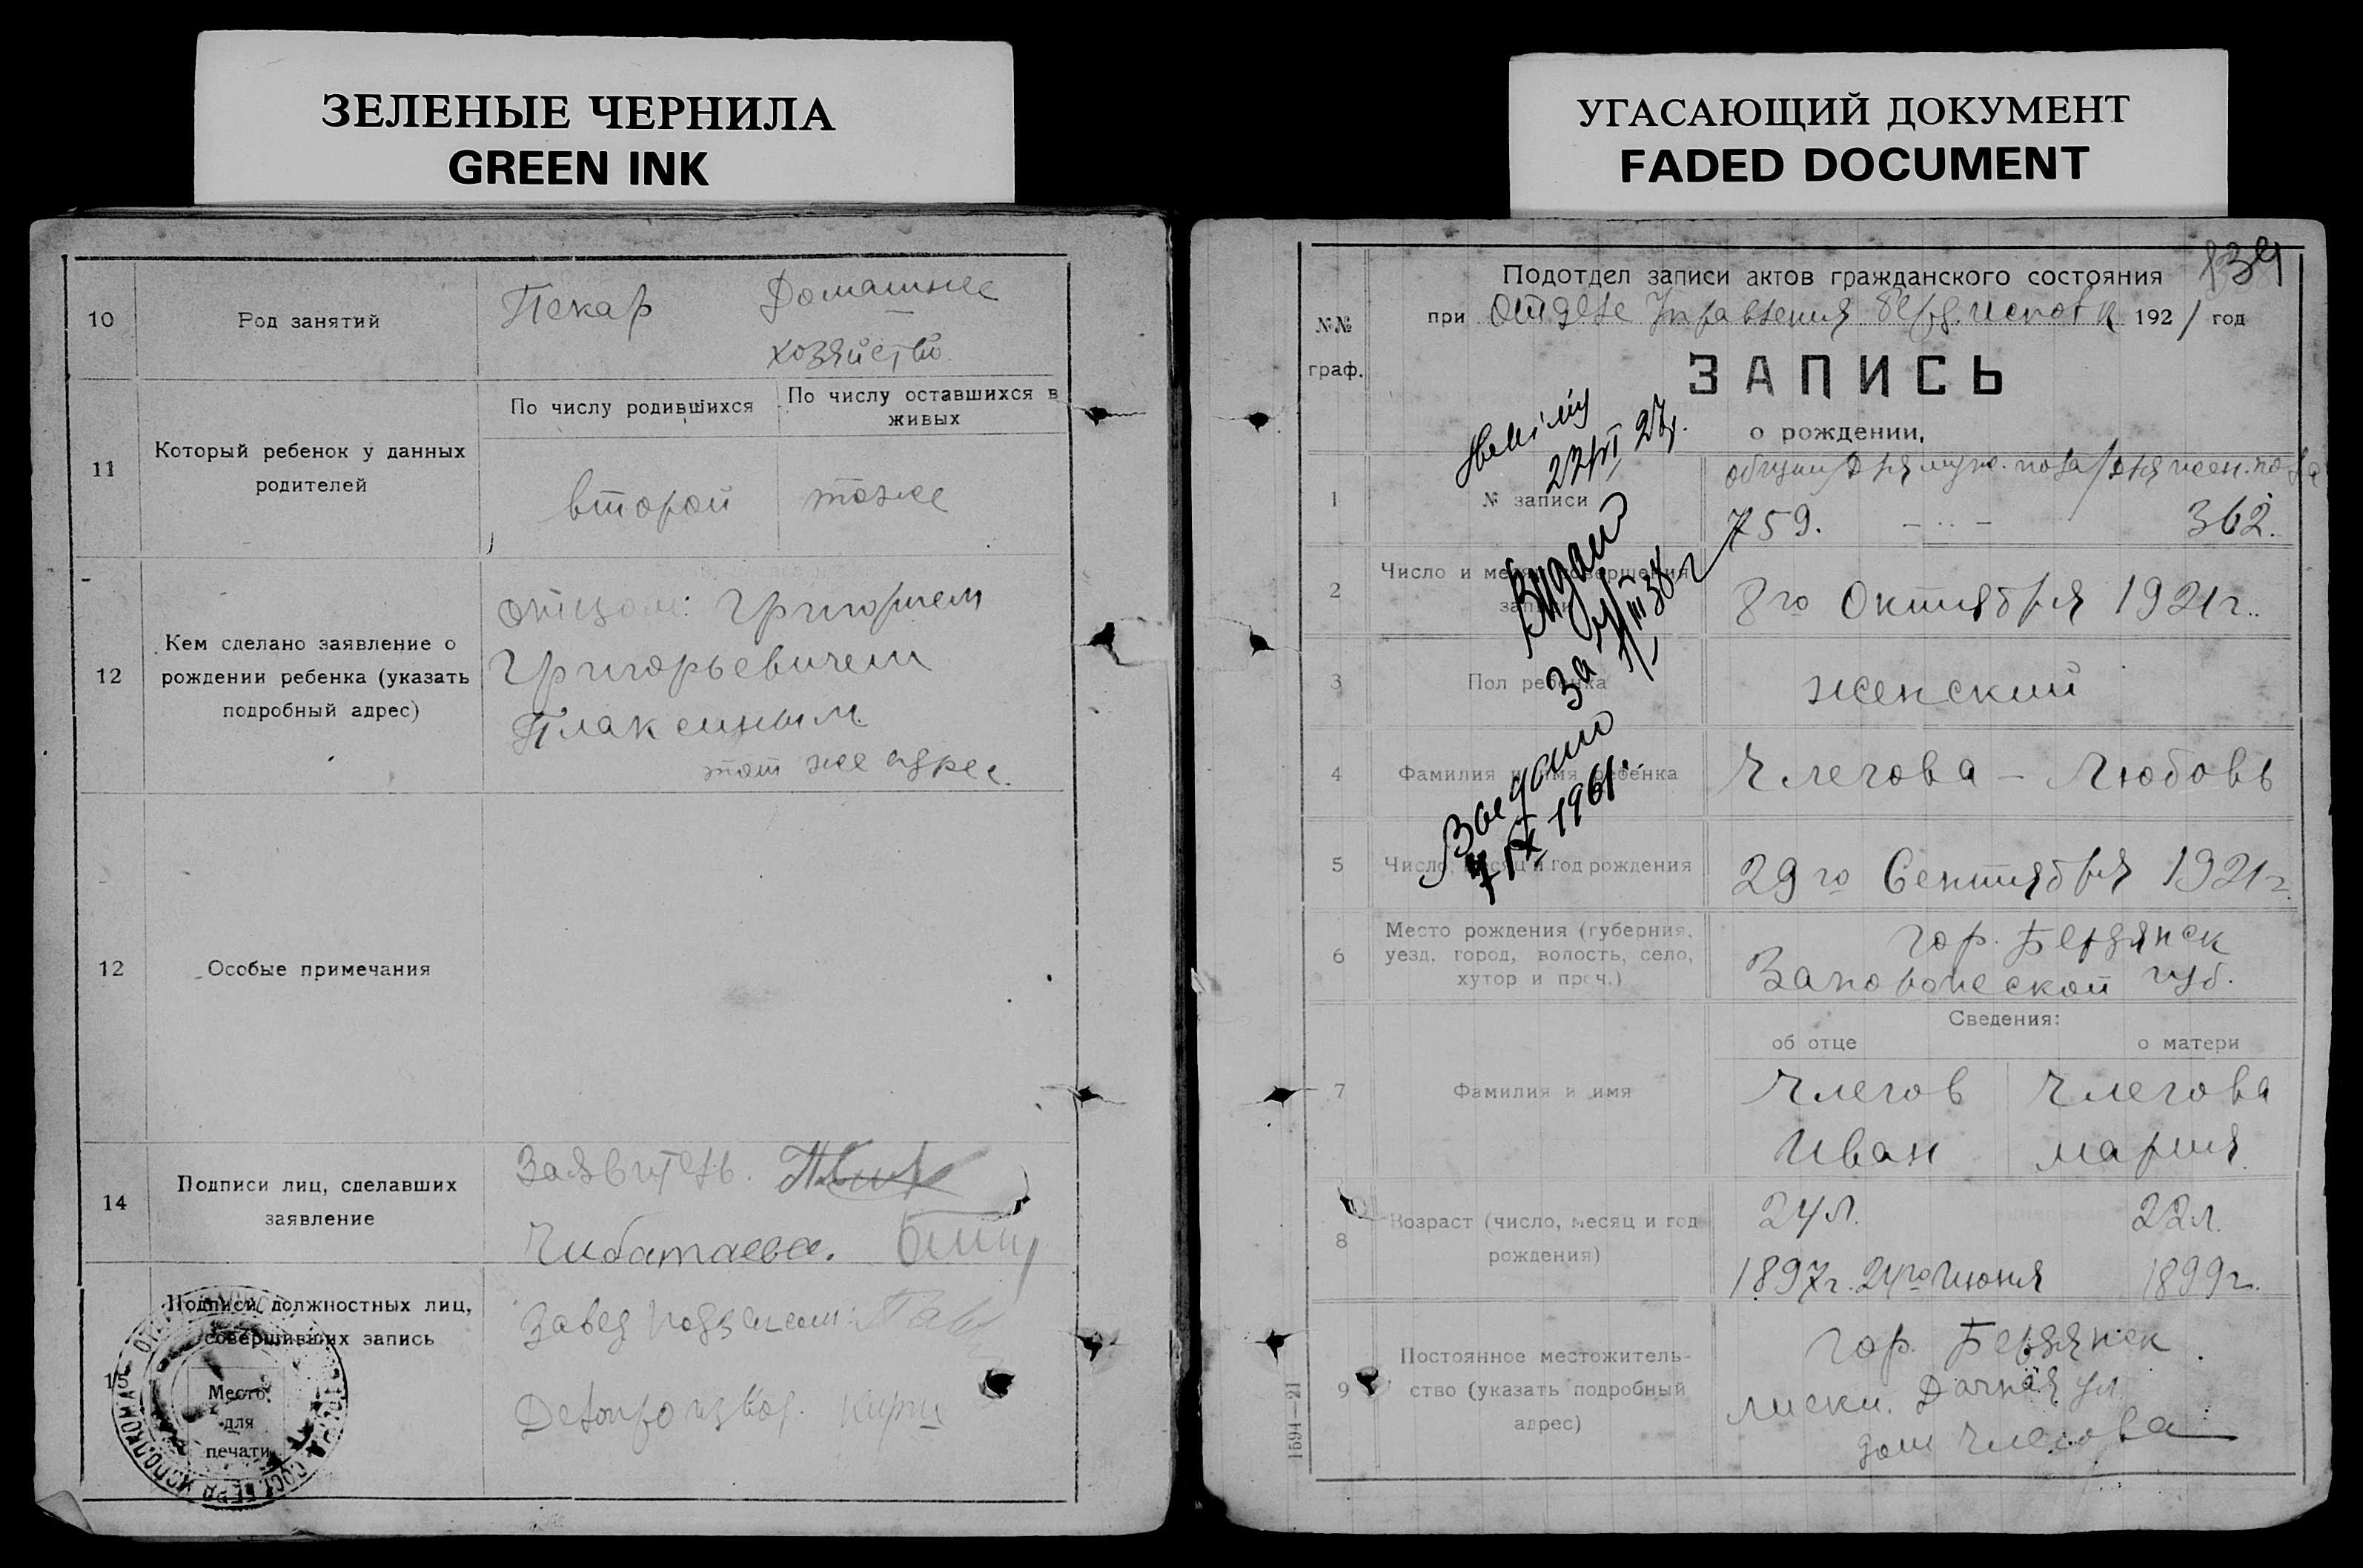 ЗЕЛЕНЫЕ ЧЕРНИЛА
GREEN INK
10
Род занятий
Пекар
Домашнее
хозяйство
11
Который ребенок у данных
родителей
По числу родившихся
По числу оставшихся в
живых
второй
тоже
12
Кем сделано заявление о
рождении ребенка (указать
подробный адрес)
отцом: Григорием
Григорьевичем
Плаксиным
тот же адрес.
12
Особые примечания
14
Подписи лиц, сделавших
заявление
Заявитель.
15
Подписи должностных лиц,
совершивших запись
Место
для
печати
Завед
Делопроизвод.
УГАСАЮЩИЙ ДОКУМЕНТ
FADED DOCUMENT
839
Подотдел записи актов гражданского состояния
при Отделе Управления Берд. 1921 год
№№
граф.
ЗАПИСЬ
о рождении,
1
№ записи
общий/для муж. пола/для жен. пола
759. 362.
2
Число и месяц совершения
записи
8го Октября 1921г.
3
Пол ребенка
женский
4
Фамилия и имя ребенка
Члегова - Любовь
5
Число, месяц и год рождения
29го Сентября 1921г.
6
Место рождения (губерния,
уезд, город, волость, село,
хутор и проч.)
гор. Бердянск
губ.
Сведения:
об отце
о матери
7
Фамилия и имя
Члегов
Иван
Члегова
Мария
8
Возраст (число, месяц и год
рождения)
24л.
1897г. 24го Июня
22л.
1899г.
9
Постоянное местожитель-
ство (указать подробный
адрес)
гор. Бердянск
Лиски. Дачная ул.
дом Члегова
Выдано
1961г.
1594—21